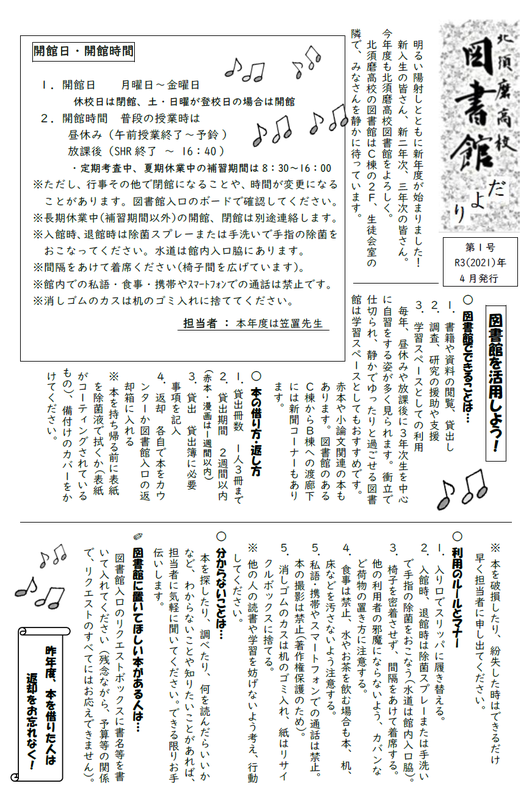 北須磨高校
図書館
だより
第1号
R3(2021)年
4月発行
明るい陽射しとともに新年度が始まりました!
新入生の皆さん、新二年次、三年次の皆さん。
今年度も北須磨高校図書館をよろしく。
北須磨高校の図書館はC棟の2F、生徒会室の
隣で、みなさんを静かに待っています。
開館日・開館時間
1.開館日 月曜日~金曜日
休校日は閉館、土・日曜が登校日の場合は開館
2.開館時間 普段の授業時は
昼休み(午前授業終了~予鈴)
放課後(SHR終了 ~ 16:40)
・定期考査中、夏期休業中の補習期間は8:30~16:00
※ただし、行事その他で閉館になることや、時間が変更になる
ことがあります。図書館入口のボードで確認してください。
※長期休業中(補習期間以外)の開館、閉館は別途連絡します。
※入館時、退館時は除菌スプレーまたは手洗いで手指の除菌を
おこなってください。水道は館内入口脇にあります。
※間隔をあけて着席ください(椅子間を広げています)。
※館内での私語・食事・携帯やスマートフォンでの通話は禁止です。
※消しゴムのカスは机のゴミ入れに捨ててください。
担当者:本年度は笠置先生
図書館を活用しよう!
○ 図書館でできることは…
1.書籍や資料の閲覧、貸出し
2.調査、研究の援助や支援
3.学習スペースとしての利用
毎年、昼休みや放課後に3年次生を中心
に自習をする姿が多く見られます。衝立で
仕切られ、静かでゆったりと過ごせる図書
館は学習スペースとしてもおすすめです。
赤本や小論文関連の本も
あります。図書館のある
C棟からB棟への渡廊下
には新聞コーナーもあり
ます。
○ 本の借り方・返し方
1.貸出冊数 1人3冊まで
2.貸出期間 2週間以内
(赤本・漫画は1週間以内)
3.貸出 貸出簿に必要
事項を記入
4.返却 各自で本をカウ
ンターか図書館入口の返
却箱に入れる
※ 本を持ち帰る前に表紙
を除菌液で拭くか(表紙
がコーティングされている
もの)、備付けのカバーをか
けてください。
※ 本を破損したり、紛失した時はできるだけ
早く担当者に申し出てください。
○ 利用のルールとマナー
1.入り口でスリッパに履き替える。
2.入館時、退館時は除菌スプレーまたは手洗い
で手指の除菌をおこなう(水道は館内入口脇)。
3.椅子を密着させず、間隔をあけて着席する。
他の利用者の邪魔にならないよう、カバンな
ど荷物の置き方に注意する。
4.食事は禁止、水やお茶を飲む場合も本、机、
床などを汚さないよう注意する。
5.私語・携帯やスマートフォンでの通話は禁止。
本の撮影は禁止(著作権保護のため)。
5.消しゴムのカスは机のゴミ入れ、紙はリサイ
クルボックスに捨てる。
※ 他の人の読書や学習を妨げないよう考え、行動
してください。
○ 分からないことは…
本を探したり、調べたり、何を読んだらいいか
など、わからないことや知りたいことがあれば、
担当者に気軽に聞いてください。できる限りお手
伝いします。
図書館に置いてほしい本がある人は…
図書館入口のリクエストボックスに書名等を書
いて入れてください(残念ながら、予算等の関係
で、リクエストのすべてにはお応えできません)。
昨年度、本を借りた人は
返却をお忘れなく!